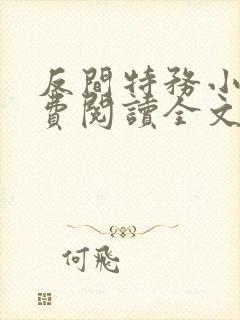 反間特務小
費閱讀全文
何飛